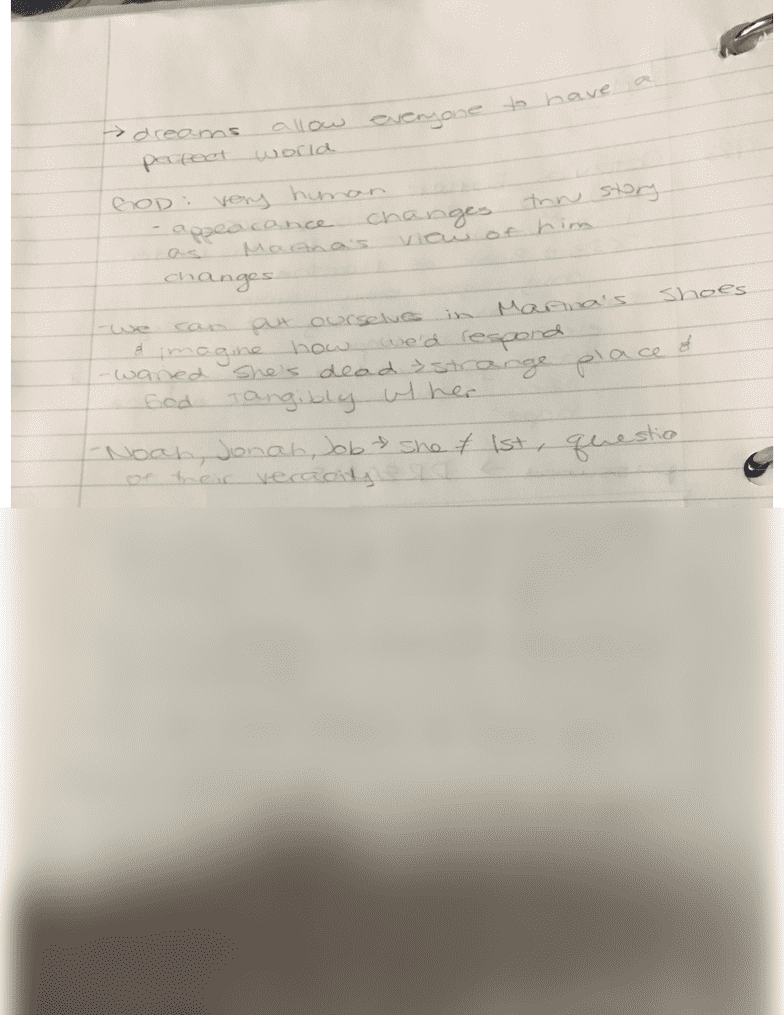 → dreams allow everyone to have a
perfect world
GOD: very human
- appearance changes thru story
as Martha's view of him
changes
- we can put ourselves in Martha's shoes
& imagine how we'd respond
- she's dead → strange place &
God tangibly w/ her
- Noah, Jonah, Job → she ≠ 1st, questio
of their veracity